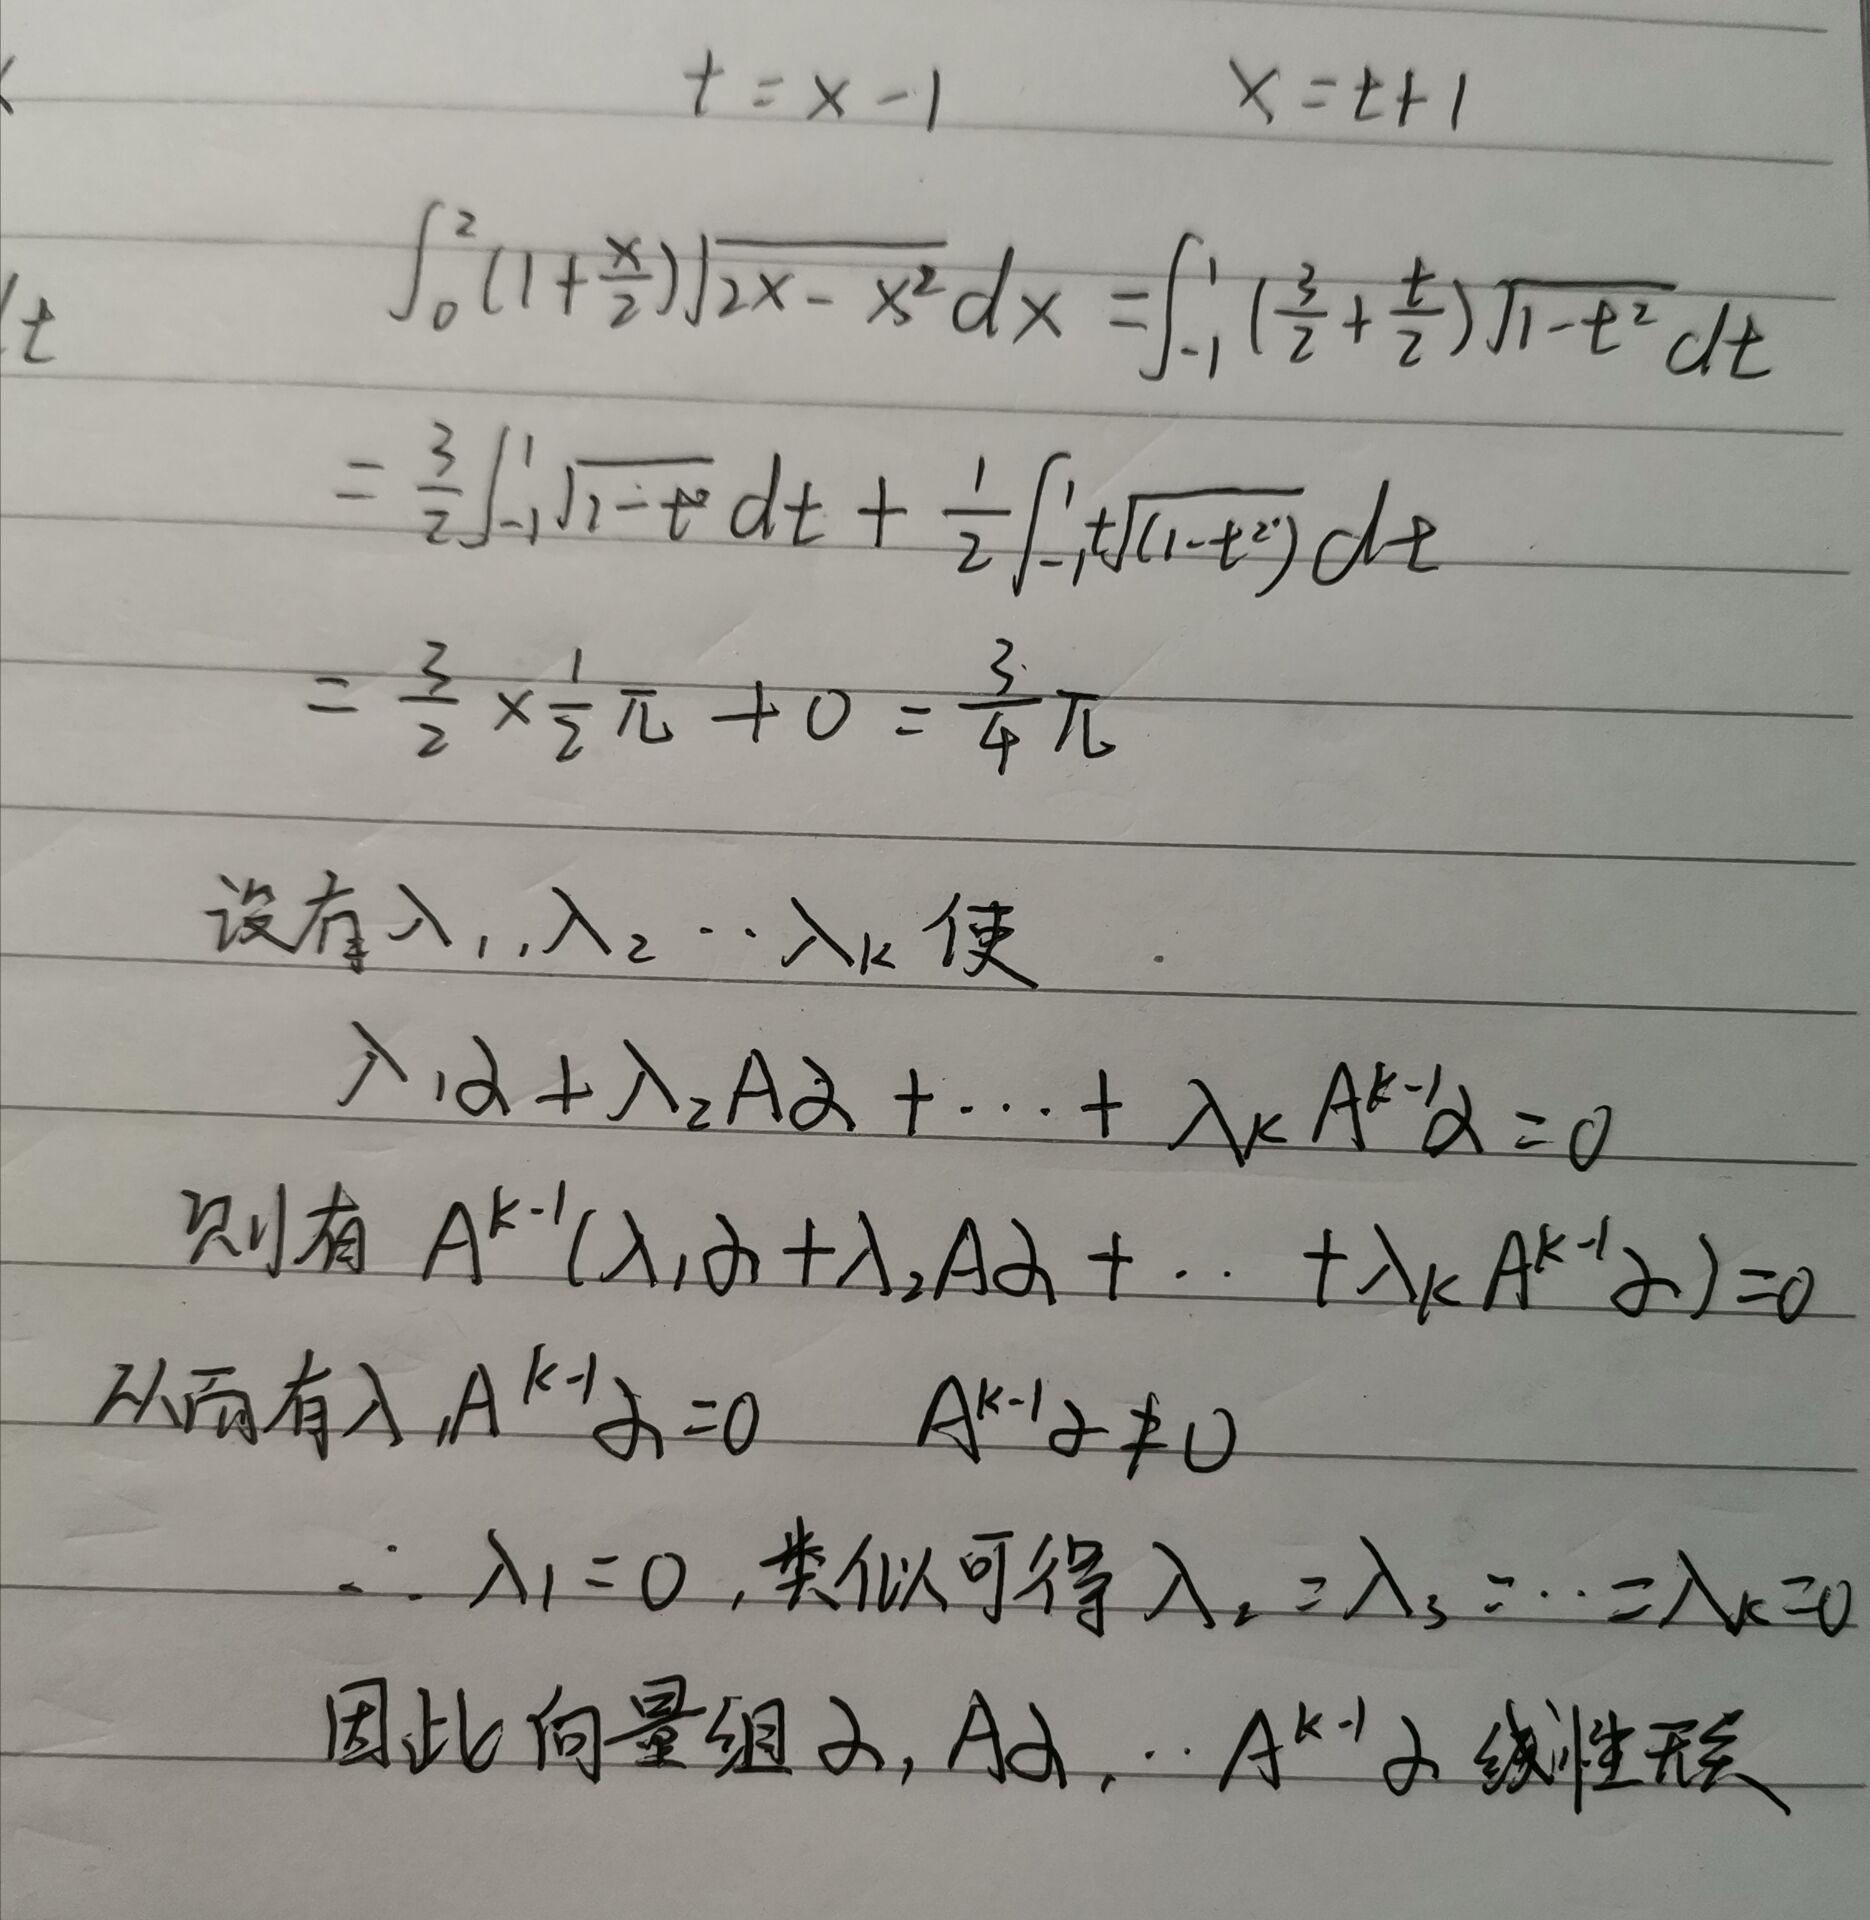 t = x - 1    x = t + 1
∫₀² (1 + x/2) √(2x - x²) dx = ∫₋₁¹ (3/2 + t/2) √(1 - t²) dt
t
= 3/2 ∫₋₁¹ √(1 - t²) dt + 1/2 ∫₋₁¹ t√((1 - t²)) dt
= 3/2 × 1/2 π + 0 = 3/4 π
设有 λ₁, λ₂ ‥ λₖ 使
λ₁α + λ₂Aα + ⋯ + λₖAᵏ⁻¹α = 0
则有 Aᵏ⁻¹(λ₁α + λ₂Aα + ‥ + λₖAᵏ⁻¹α) = 0
从而有 λ₁Aᵏ⁻¹α = 0    Aᵏ⁻¹α ≠ 0
∴ λ₁ = 0, 类似可得 λ₂ = λ₃ = ‥ = λₖ = 0
因此向量组 α, Aα, ‥ Aᵏ⁻¹α 线性无关